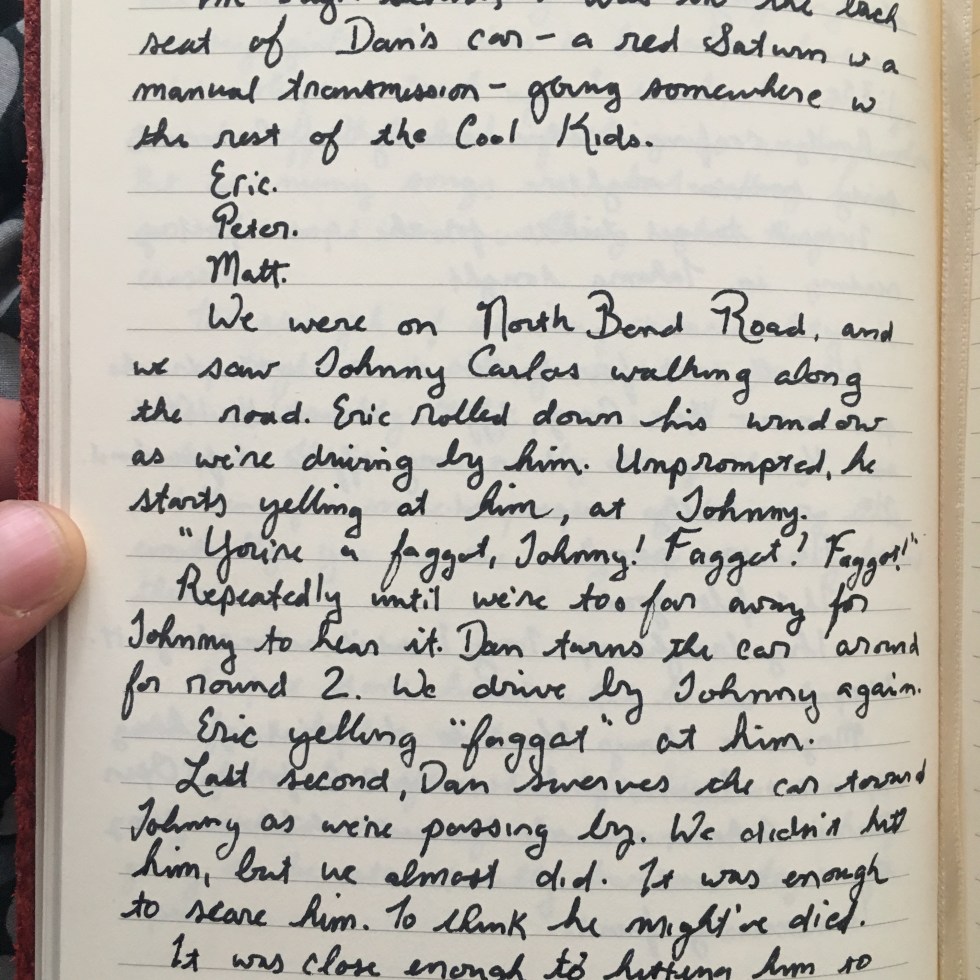 seat of Dan's car - a red Saturn w a
manual transmission - going somewhere w
the rest of the Cool Kids.
Eric.
Peter.
Matt.
We were on North Bend Road, and
we saw Johnny Carlos walking along
the road. Eric rolled down his window
as we're driving by him. Unprompted, he
starts yelling at him, at Johnny.
"You're a faggot, Johnny! Faggot! Faggot!"
Repeatedly until we're too far away for
Johnny to hear it. Dan turns the car around
for round 2. We drive by Johnny again.
Eric yelling "faggot" at him.
Last second, Dan swerves the car toward
Johnny as we're passing by. We didn't hit
him, but we almost did. It was enough
to scare him. To think he might've died.
It was close enough to hitting him to